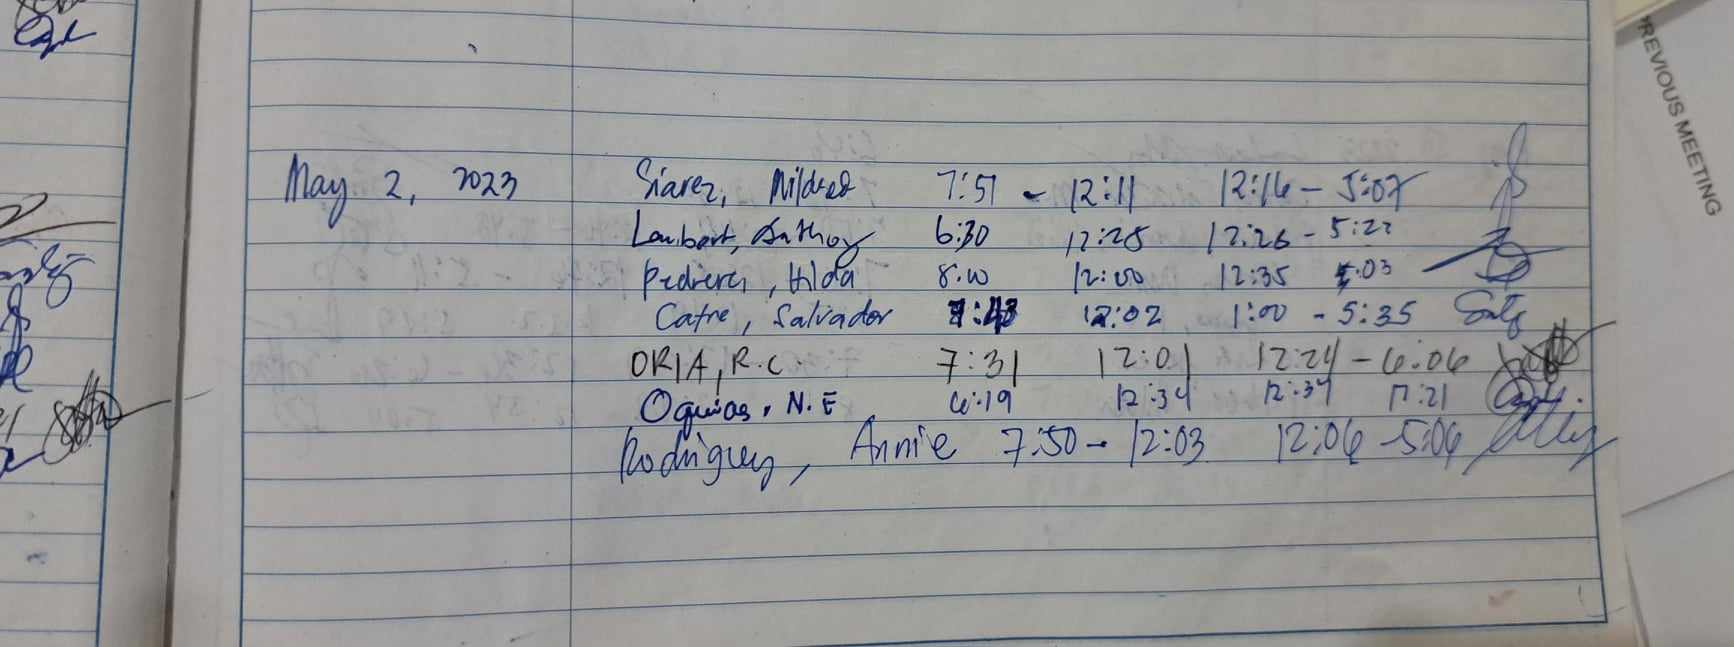 PREVIOUS MEETING
May 2, 2023 Siarez, Mildred 7:51 - 12:11 12:16 - 5:07
Lambert, Anthoy 6:30 12:25 12:26 - 5:22
Pedrera, Hilda 8:00 12:00 12:35 5:03
Catre, Salvador 7:43 12:02 1:00 - 5:35
ORIA, R.C. 7:31 12:01 12:24 - 6:06
Oquias, N.E 6:19 12:34 12:37 17:21
Rodriguez, Annie 7:50 - 12:03 12:06 - 5:06